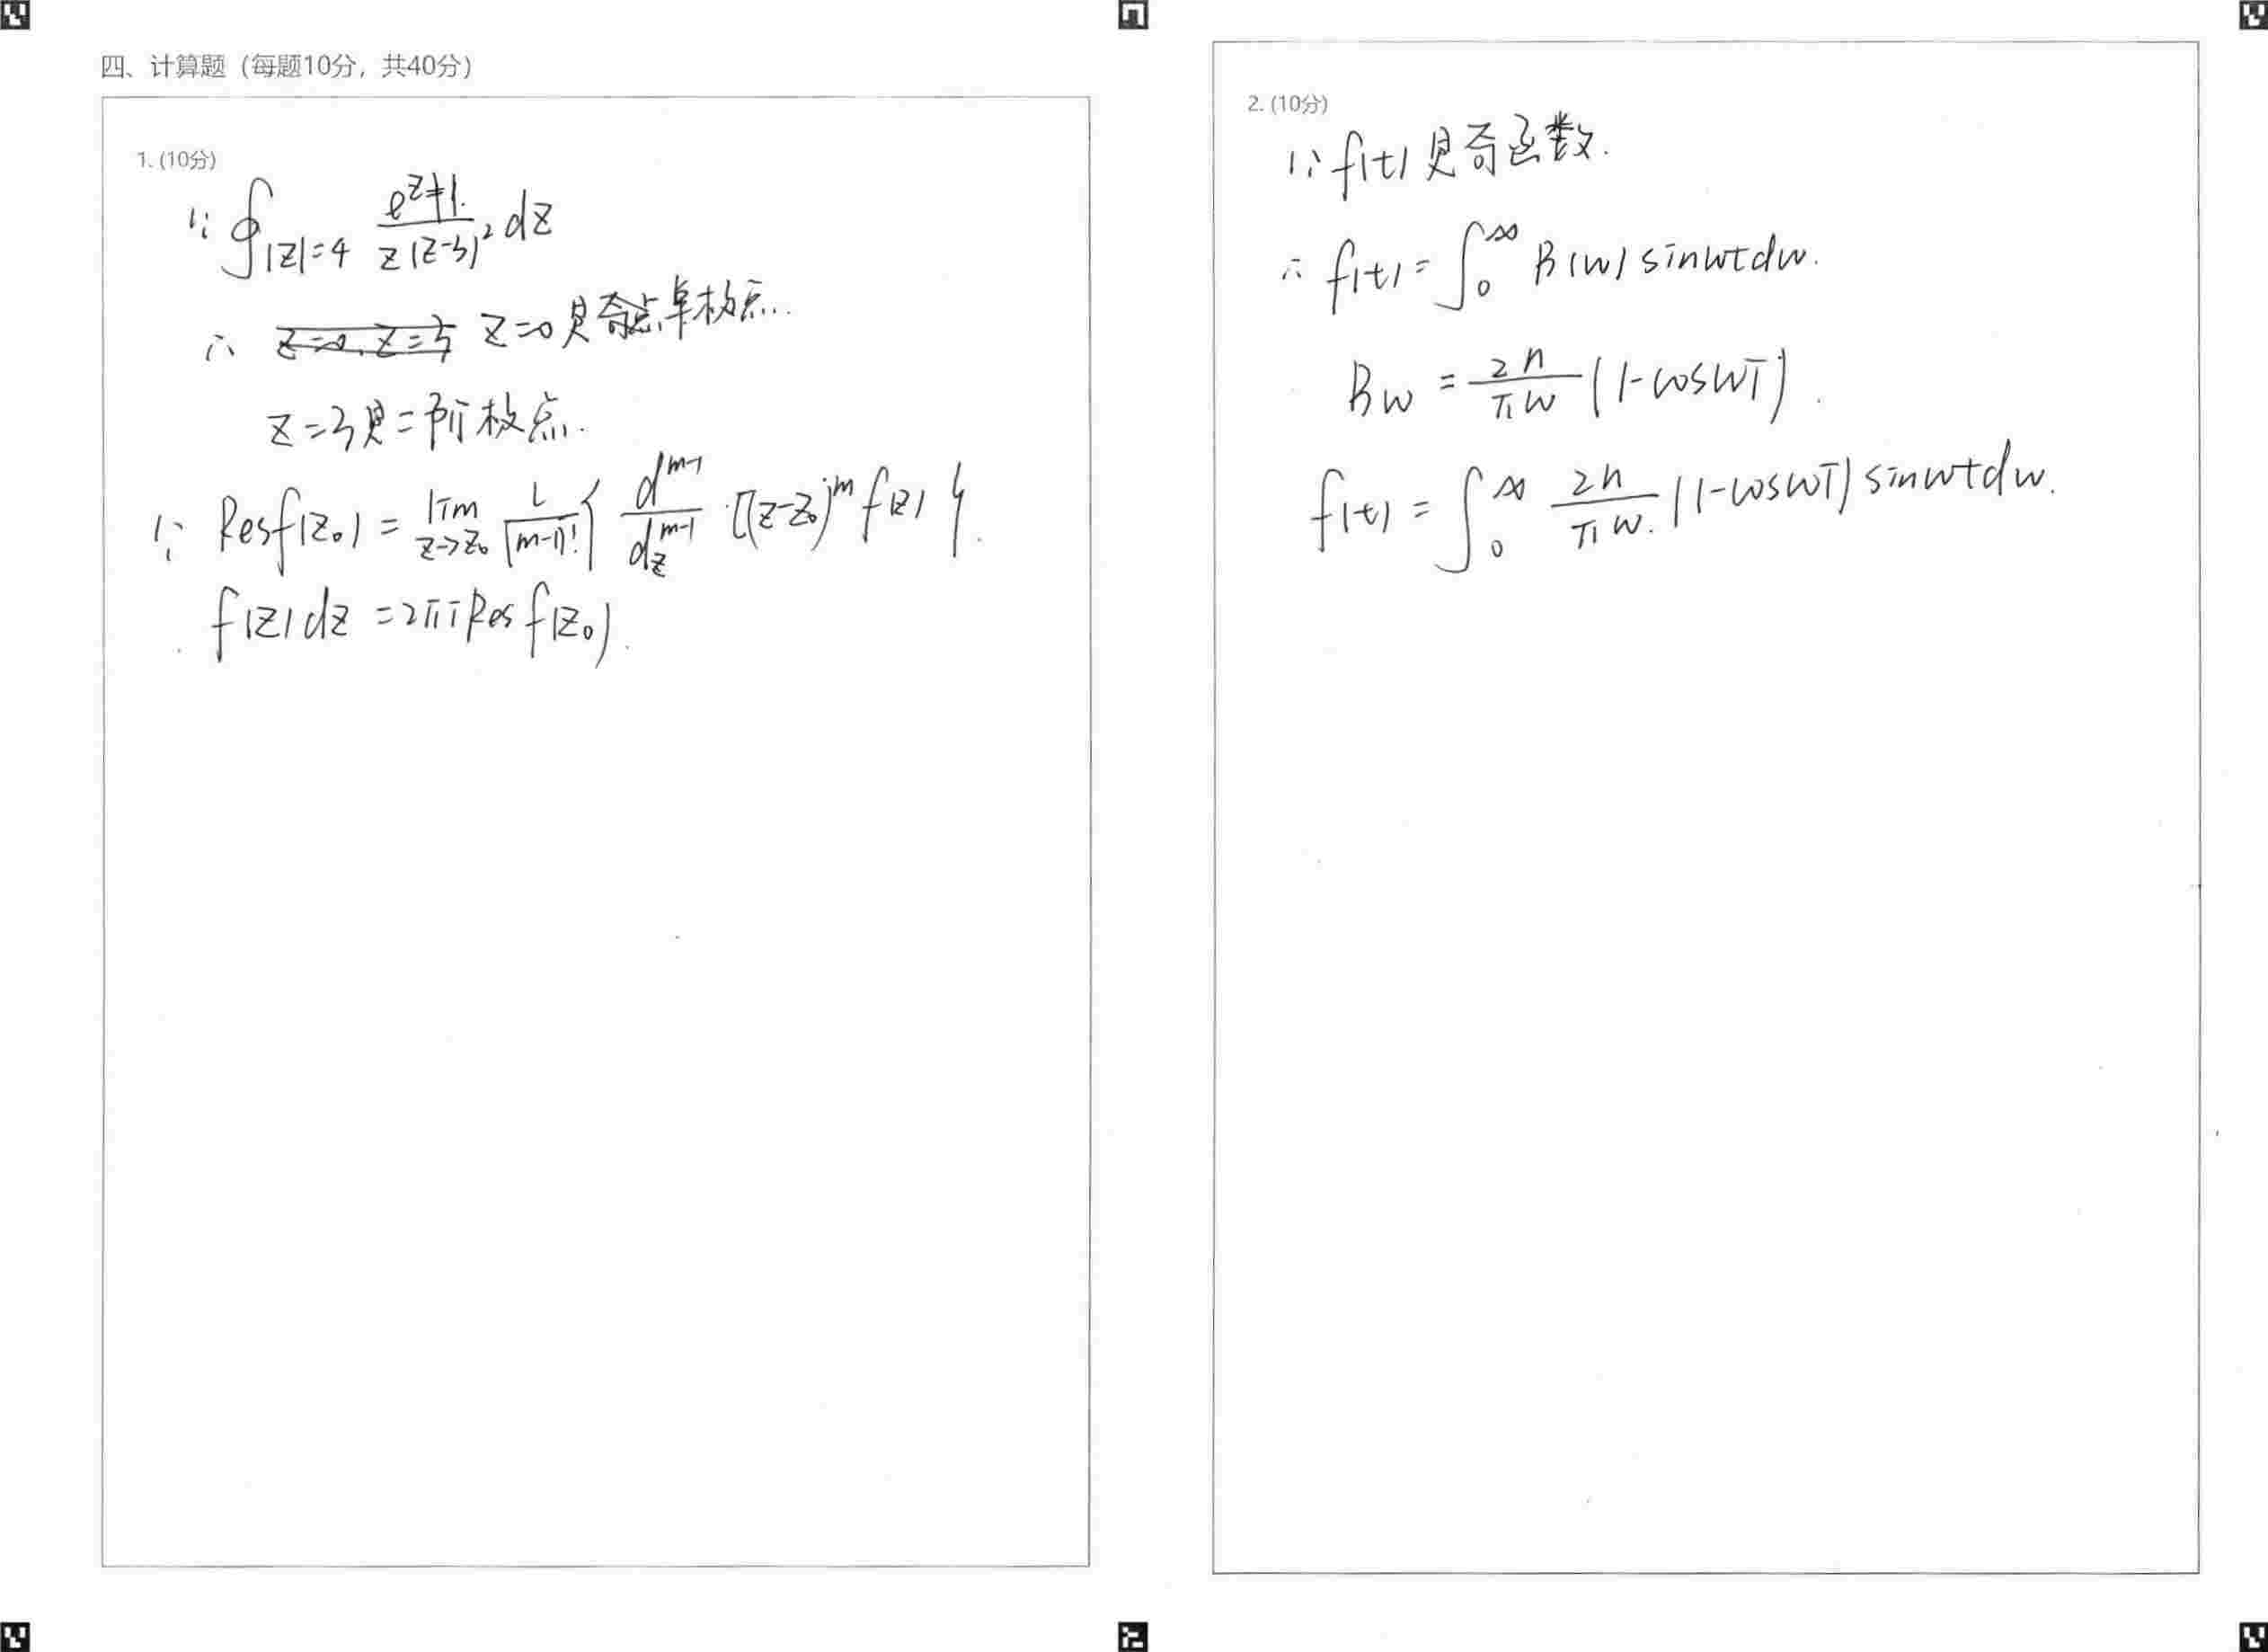 四、计算题（每题10分，共40分）
1. (10分)
∵ ∮|z|=4 (e^z+1)/(z(z-3)^2) dz
∴ z=0是单极点.
z=3是二阶极点.
∵ Resf(z₀) = lim z→z₀ 1/(m-1)! { d^(m-1)/dz^(m-1) [(z-z₀)^m f(z) }.
f(z)dz = 2πi Res f(z₀).
2. (10分)
∵ f(t)是奇函数.
∴ f(t) = ∫₀^∞ B(w) sinwtdw.
Bw = 2h/πw (1-coswT).
f(t) = ∫₀^∞ 2h/πw. (1-coswT) sinwtdw.